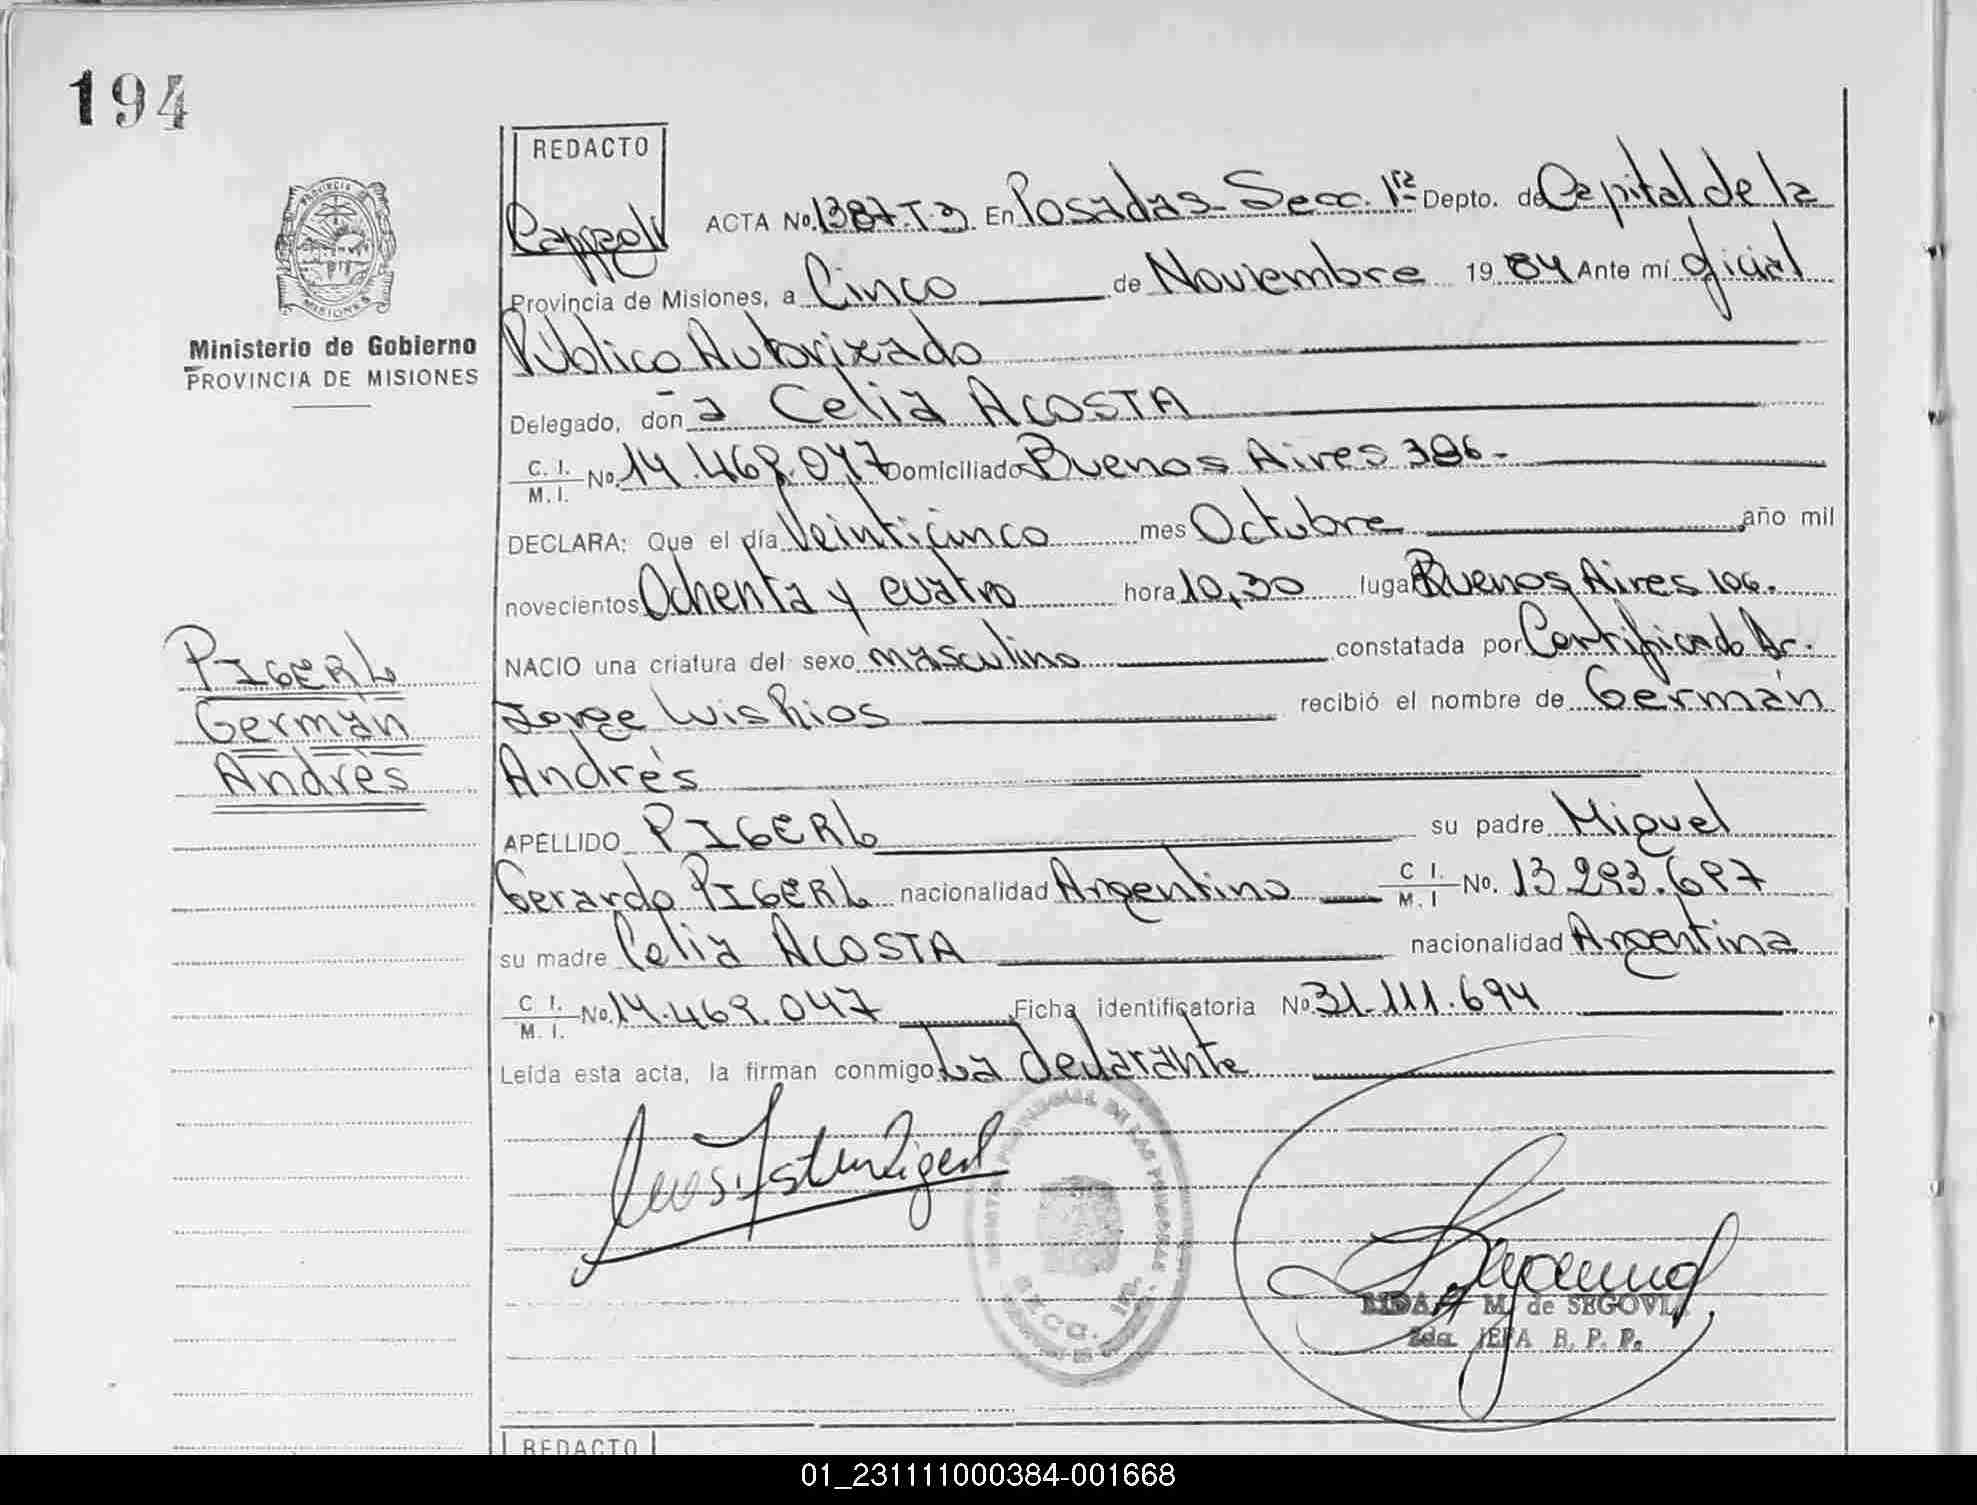 194
REDACTO
ACTA No. 1387-T-3 En Posadas - Secc. 1ra Depto. de Capital de la
Provincia de Misiones, a Cinco de Noviembre 1984 Ante mí oficial
Ministerio de Gobierno
PROVINCIA DE MISIONES
Público Autorizado
Delegado, doña Celia ACOSTA
C. I. / M. I. No. 14.469.047 Domiciliado Buenos Aires 386-
DECLARA: Que el día Veinticinco mes Octubre año mil
novecientos Ochenta y cuatro hora 10,30 lugar Buenos Aires 106.
NACIO una criatura del sexo masculino constatada por Certificado Dr.
PIGERL
Germán
Andrés
Jorge Luis Rios recibió el nombre de Germán
Andrés
APELLIDO PIGERL su padre Miguel
Gerardo PIGERL nacionalidad Argentino C I. / M. I No. 13.293.697
su madre Celia ACOSTA nacionalidad Argentina
C I. / M. I. No. 14.469.047 Ficha identificatoria No 31.111.694
Leída esta acta, la firman conmigo La declarante
M. de SEGOVIA
2da. JEFA R. P. P.
REDACTO
01_231111000384-001668